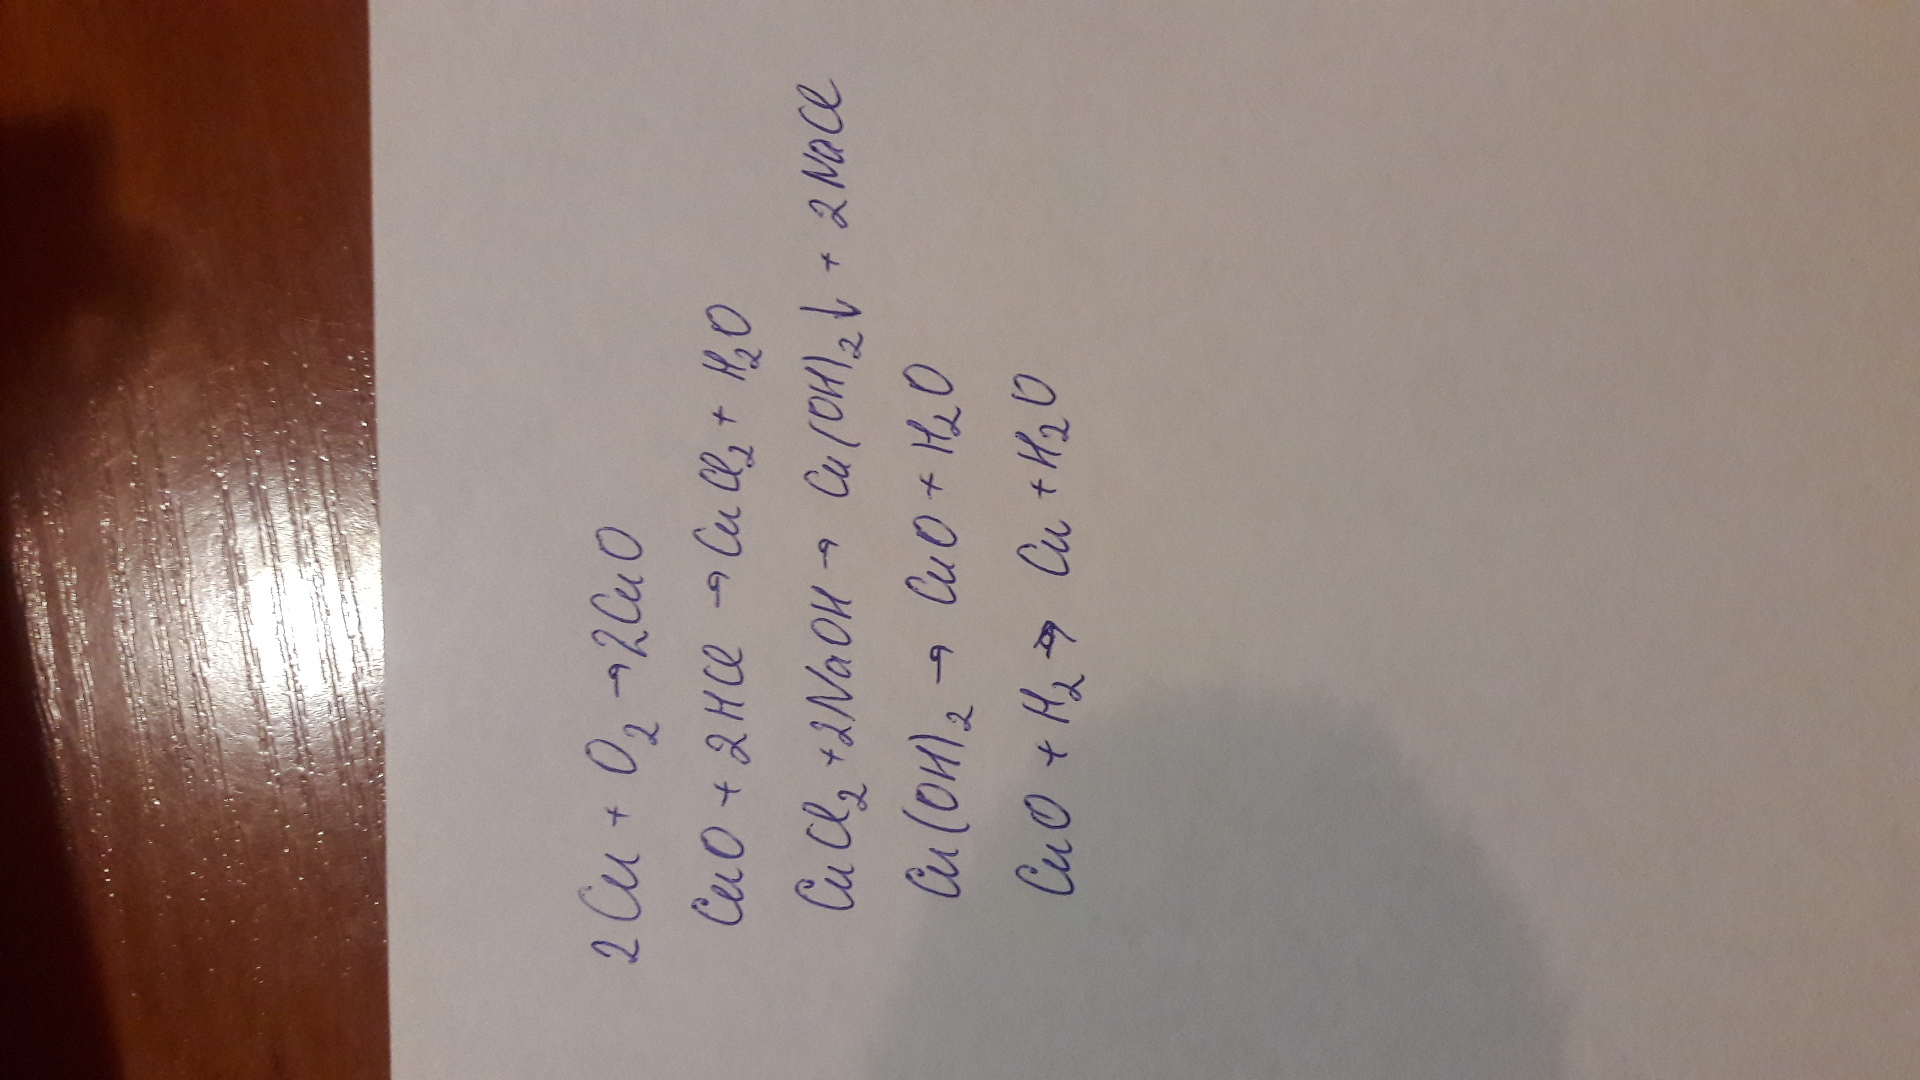 2Cu + O₂ → 2CuO
CuO + 2HCl → CuCl₂ + H₂O
CuCl₂ + 2NaOH → Cu(OH)₂↓ + 2NaCl
Cu(OH)₂ → CuO + H₂O
CuO + H₂ → Cu + H₂O